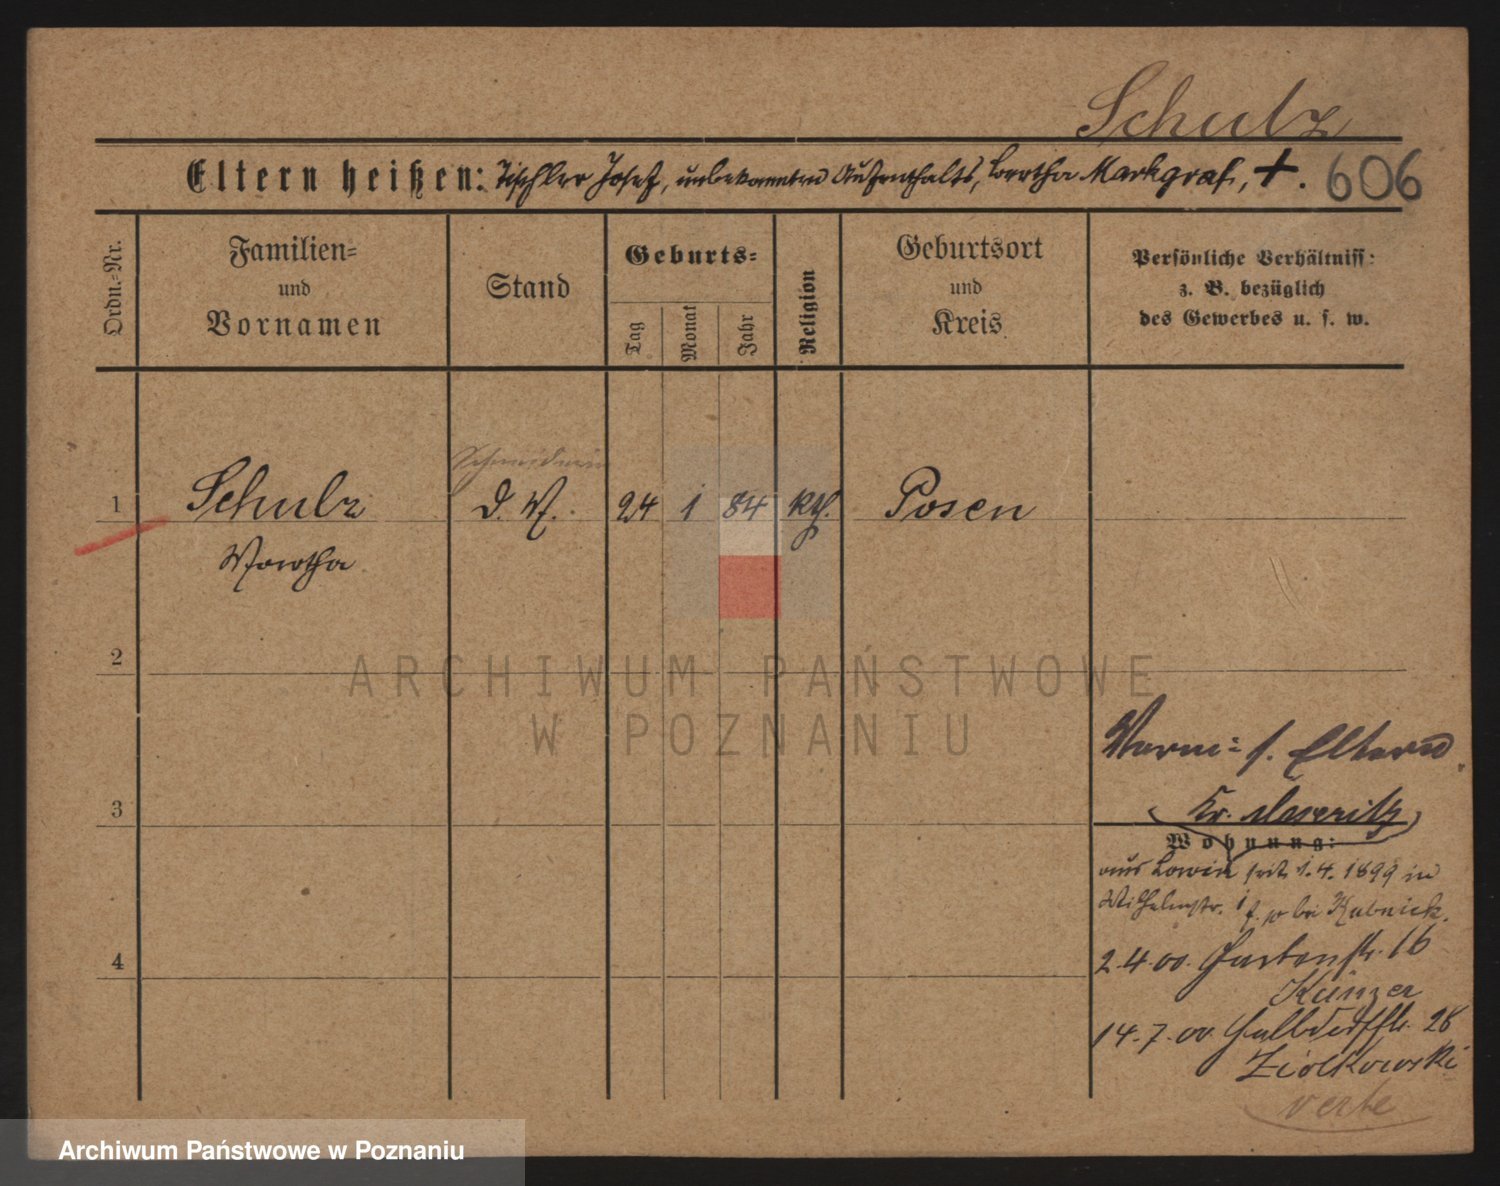 Schulz
Eltern heißen: Tischler Josef, unbekannten Aufenthalts, Bertha Markgraf, +. 606
Ordn.-Nr.
Familien-
und
Vornamen
Stand
Geburts-
Tag
Monat
Jahr
Religion
Geburtsort
und
Kreis
Persönliche Verhältniss:
z. B. bezüglich
des Gewerbes u. s. w.
Schneiderin
1 Schulz D. M. 24 1 84 kth. Posen
Martha
2
ARCHIWUM PAŃSTWOWE
W POZNANIU
s. Eltern
3
Kr. Meseritz
Wohnung:
aus Lowin seit 1.4.1899 in
Wilhelmstr. bei Kubnick.
4
2.4.00. Gartenstr. 16
Künzer
14.7.00 Halbdorfstr. 28
Ziolkowski
verte
Archiwum Państwowe w Poznaniu